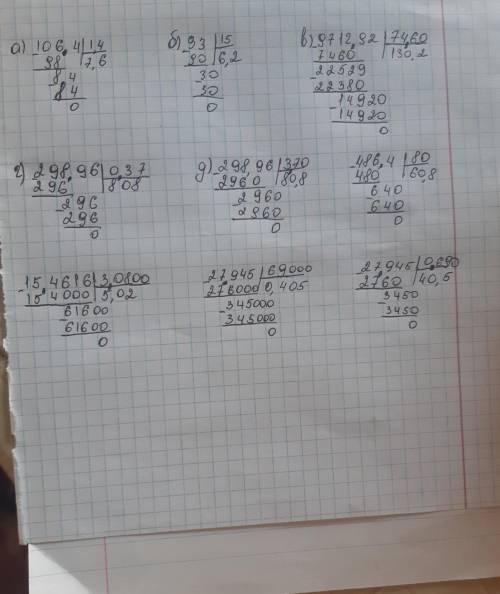 а) 106,4 | 14
98 | 7,6
84
84
0
б) 93 | 15
90 | 6,2
30
30
0
в) 9712,92 | 74,60
7460 | 130,2
22529
22380
14920
14920
0
г) 298,96 | 0,37
296 | 808
296
296
0
д) 298,96 | 370
2960 | 80,8
2960
2960
0
486,4 | 80
480 | 60,8
640
640
0
15,4616 | 3,0800
15,4000 | 5,02
61600
61600
0
27,945 | 69000
276000 | 0,405
345000
345000
0
27945 | 0,690
2760 | 40,5
3450
3450
0